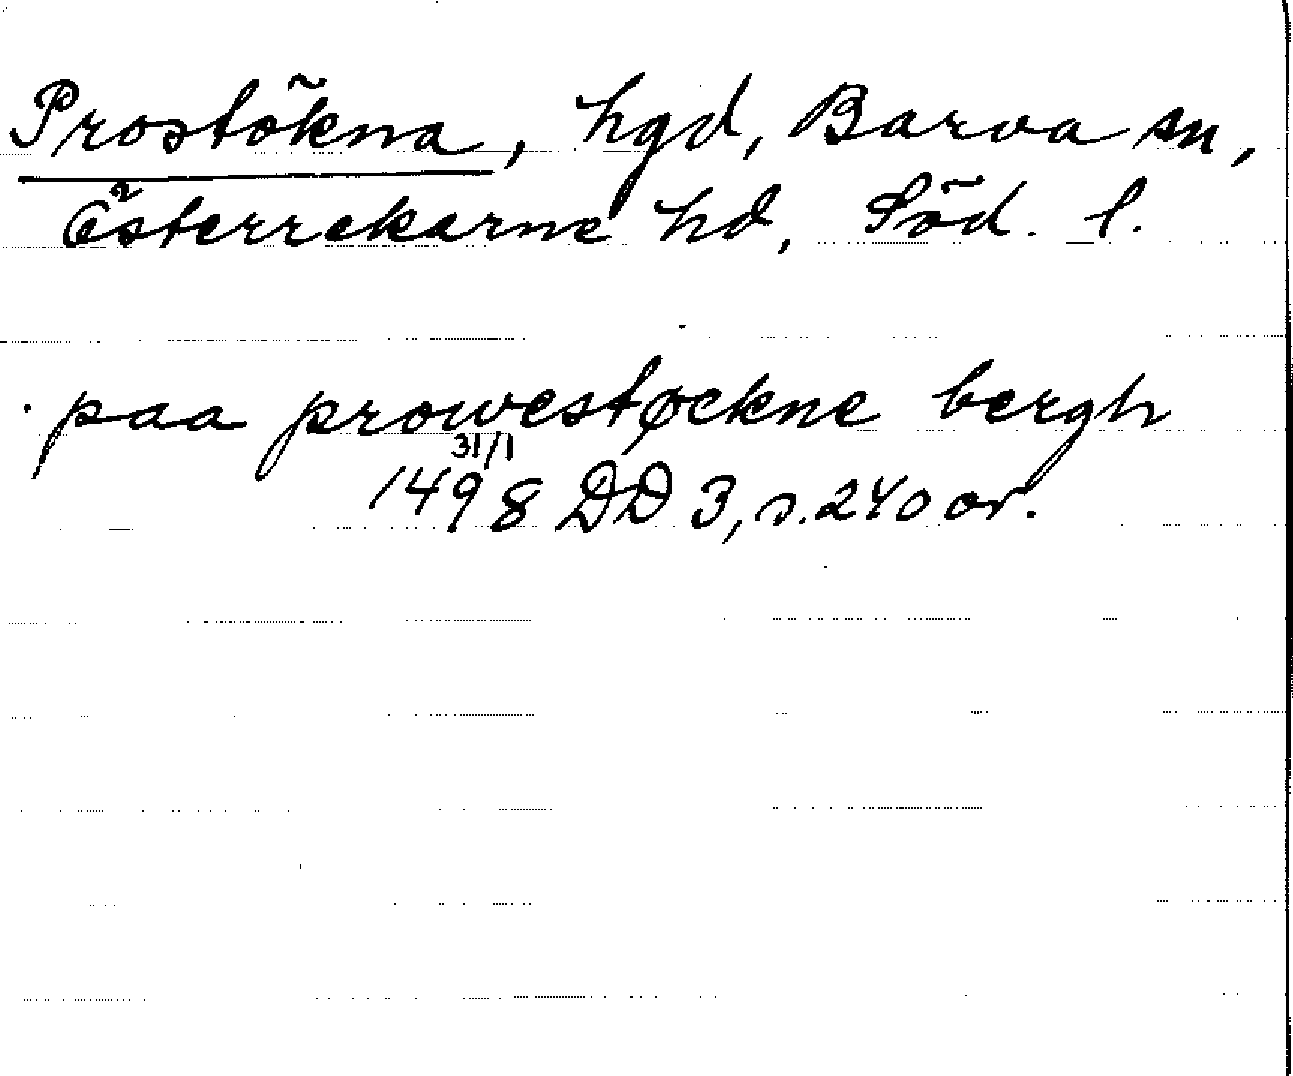 Prostökna, hgd, Barva sn,
Österrekarne hd, Söd. l.
paa prowestøckne bergh
31/1
1498 DD 3, s. 240 or.